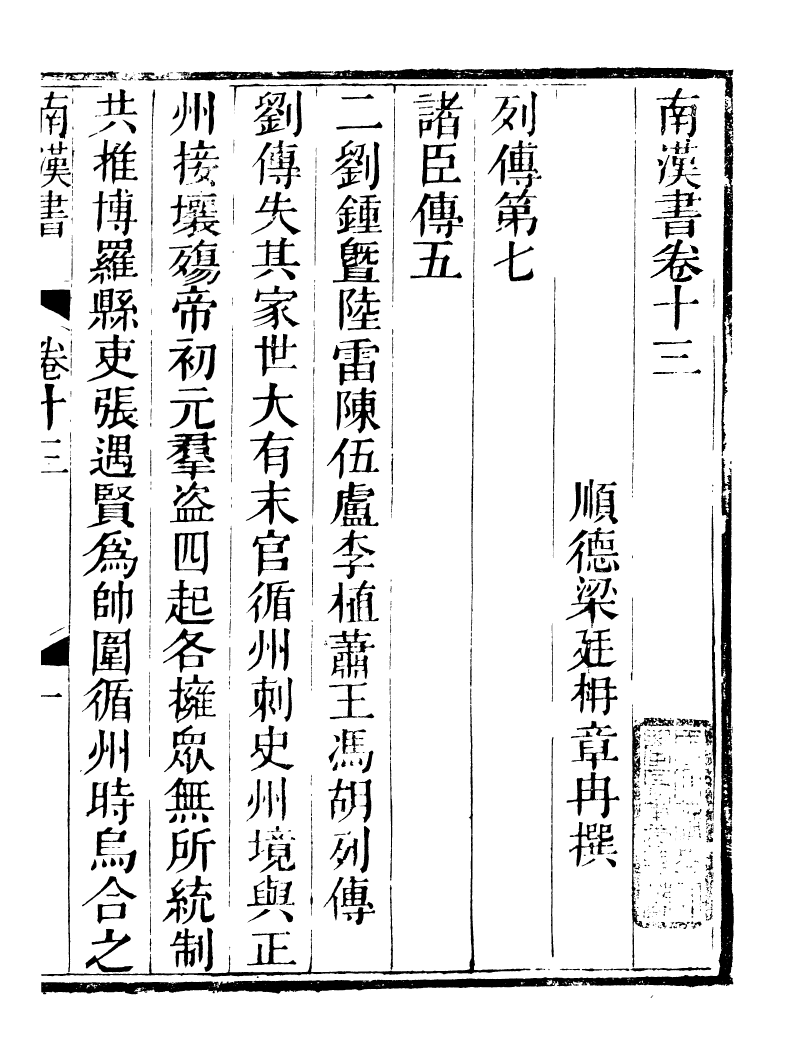 南漢書卷十三
順德梁廷枏章冉撰
列傳第七
諸臣傳五
二劉鍾曁陸雷陳伍盧李植蕭王馮胡列傳
劉傳失其家世大有末官循州刺史州境與正
州接壤殤帝初元羣盗四起各擁眾無所統制
共推博羅縣吏張遇賢爲帥圍循州時烏合之
南漢書 卷十三 一